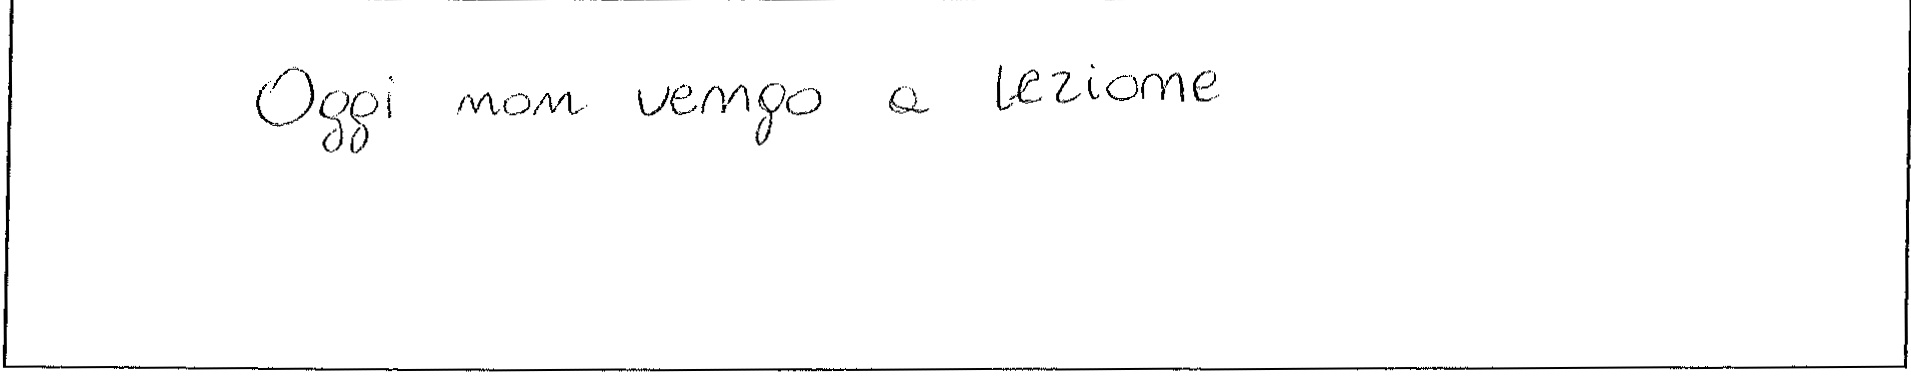 Oggi non vengo a lezione